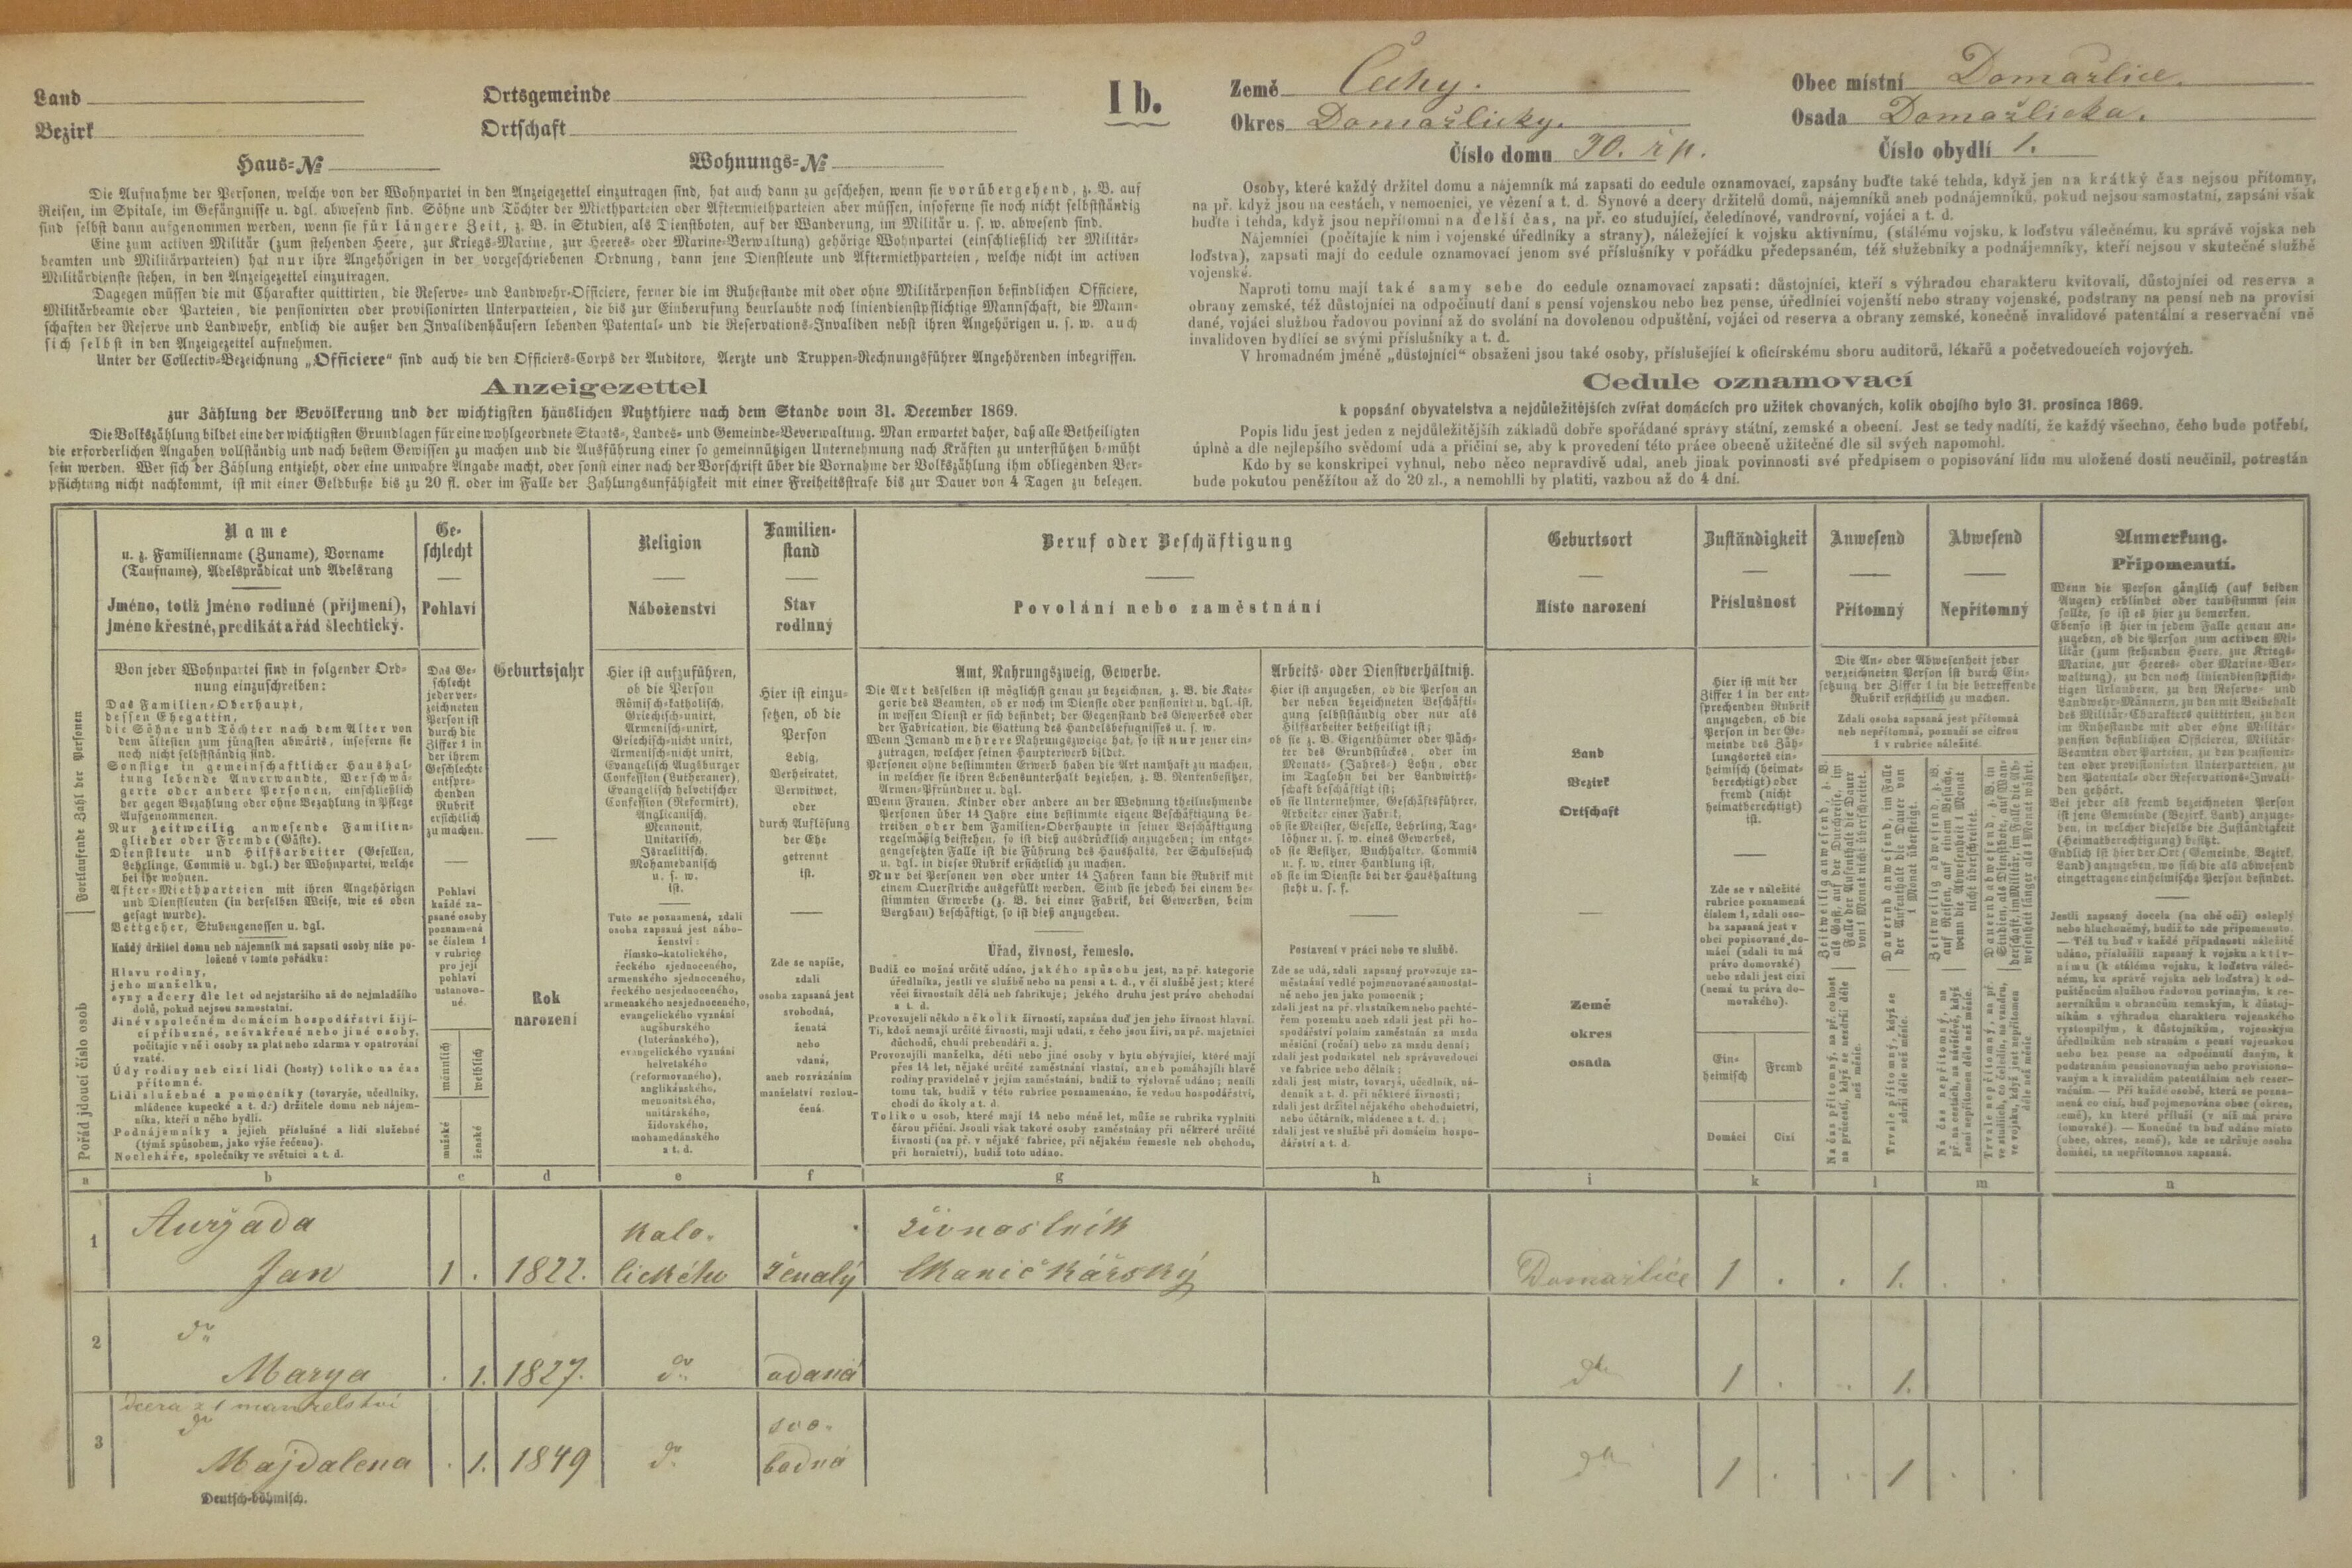 Land
Ortsgemeinde
I b.
Země Čechy.
Obec místní Domažlice.
Bezirk
Ortschaft
Okres Domažlicky.
Osada Domažlicka.
Haus-№
Wohnungs-№
Číslo domu 30. řp.
Číslo obydlí 1.
Die Aufnahme der Personen, welche von der Wohnpartei in den Anzeigezettel einzutragen sind, hat auch dann zu geschehen, wenn sie vorübergehend, z. B. auf
Reisen, im Spitale, im Gefängnisse u. dgl. abwesend sind. Söhne und Töchter der Miethparteien oder Aftermiethparteien aber müssen, insoferne sie noch nicht selbstständig
sind selbst dann aufgenommen werden, wenn sie für längere Zeit, z. B. in Studien, als Dienstboten, auf der Wanderung, im Militär u. s. w. abwesend sind.
Eine zum activen Militär (zum stehenden Heere, zur Kriegs-Marine, zur Heeres- oder Marine-Verwaltung) gehörige Wohnpartei (einschließlich der Militär-
beamten und Militärparteien) hat nur ihre Angehörigen in der vorgeschriebenen Ordnung, dann jene Dienstleute und Aftermiethparteien, welche nicht im activen
Militärdienste stehen, in den Anzeigezettel einzutragen.
Dagegen müssen die mit Charakter quittirten, die Reserve- und Landwehr-Officiere, ferner die im Ruhestande mit oder ohne Militärpension befindlichen Officiere,
Militärbeamte oder Parteien, die pensionirten oder provisionirten Unterparteien, die bis zur Einberufung beurlaubte noch liniendienstpflichtige Mannschaft, die Mann-
schaften der Reserve und Landwehr, endlich die außer den Invalidenhäusern lebenden Patental- und die Reservations-Invaliden nebst ihren Angehörigen u. s. w. auch
sich selbst in den Anzeigezettel aufnehmen.
Unter der Collectiv-Bezeichnung „Officiere“ sind auch die den Officiers-Corps der Auditore, Aerzte und Truppen-Rechnungsführer Angehörenden inbegriffen.
Anzeigezettel
zur Zählung der Bevölkerung und der wichtigsten häuslichen Nutzthiere nach dem Stande vom 31. December 1869.
Die Volkszählung bildet eine der wichtigsten Grundlagen für eine wohlgeordnete Staats-, Landes- und Gemeinde-Beverwaltung. Man erwartet daher, daß alle Betheiligten
die erforderlichen Angaben vollständig und nach bestem Gewissen zu machen und die Ausführung einer so gemeinnützigen Unternehmung nach Kräften zu unterstützen bemüht
sein werden. Wer sich der Zählung entzieht, oder eine unwahre Angabe macht, oder sonst einer nach der Vorschrift über die Vornahme der Volkszählung ihm obliegenden Ver-
pflichtung nicht nachkommt, ist mit einer Geldbuße bis zu 20 fl. oder im Falle der Zahlungsunfähigkeit mit einer Freiheitsstrafe bis zur Dauer von 4 Tagen zu belegen.
Osoby, které každý držitel domu a nájemník má zapsati do cedule oznamovací, zapsány buďte také tehda, když jen na krátký čas nejsou přítomny,
na př. když jsou na cestách, v nemocnici, ve vězení a t. d. Synové a dcery držitelů domů, nájemníků aneb podnájemníků, pokud nejsou samostatní, zapsáni však
buďte i tehda, když jsou nepřítomni na delší čas, na př. co studující, čeledínové, vandrovní, vojáci a t. d.
Nájemníci (počítajíc k nim i vojenské úředlníky a strany), náležející k vojsku aktivnímu, (stálému vojsku, k loďstvu válečnému, ku správě vojska neb
loďstva), zapsati mají do cedule oznamovací jenom své příslušníky v pořádku předepsaném, též služebníky a podnájemníky, kteří nejsou v skutečné službě
vojenské.
Naproti tomu mají také samy sebe do cedule oznamovací zapsati: důstojníci, kteří s výhradou charakteru kvitovali, důstojníci od reserva a
obrany zemské, též důstojníci na odpočinutí daní s pensí vojenskou nebo bez pense, úředlníci vojenští nebo strany vojenské, podstrany na pensí neb na provisi
dané, vojáci službou řadovou povinní až do svolání na dovolenou odpuštění, vojáci od reserva a obrany zemské, konečně invalidové patentální a reservační vně
invalidoven bydlící se svými příslušníky a t. d.
V hromadném jméně „důstojníci“ obsaženi jsou také osoby, příslušející k oficírskému sboru auditorů, lékařů a početvedoucích vojových.
Cedule oznamovací
k popsání obyvatelstva a nejdůležitějších zvířat domácích pro užitek chovaných, kolik obojího bylo 31. prosince 1869.
Popis lidu jest jeden z nejdůležitějších základů dobře spořádané správy státní, zemské a obecní. Jest se tedy nadíti, že každý všechno, čeho bude potřebí,
úplně a dle nejlepšího svědomí udá a přičiní se, aby k provedení této práce obecně užitečné dle sil svých napomohl.
Kdo by se konskripci vyhnul, nebo něco nepravdivě udal, aneb jinak povinnosti své předpisem o popisování lidu mu uložené dosti neučinil, potrestán
bude pokutou peněžitou až do 20 zl., a nemohlli by platiti, vazbou až do 4 dní.
Fortlaufende Zahl der Personen
Pořád jdoucí číslo osob
Name
u. z. Familienname (Zuname), Vorname
(Taufname), Adelsprädicat und Adelsrang
Jméno, totiž jméno rodinné (příjmení),
jméno křestné, predikát a řád šlechtický.
Von jeder Wohnpartei sind in folgender Ord-
nung einzuschreiben:
Das Familien-Oberhaupt,
dessen Ehegattin,
die Söhne und Töchter nach dem Alter von
dem ältesten zum jüngsten abwärts, insoferne sie
noch nicht selbstständig sind.
Sonstige in gemeinschaftlicher Haushal-
tung lebende Anverwandte, Verschwä-
gerte oder andere Personen, einschließlich
der gegen Bezahlung oder ohne Bezahlung in Pflege
Aufgenommenen.
Nur zeitweilig anwesende Familien-
glieder oder Fremde (Gäste).
Dienstleute und Hilfsarbeiter (Gesellen,
Lehrlinge, Commis u. dgl.) der Wohnpartei, welche
bei ihr wohnen.
After-Miethparteien mit ihren Angehörigen
und Dienstleuten (in derselben Weise, wie es oben
gesagt wurde).
Bettgeher, Stubengenossen u. dgl.
Každý držitel domu neb nájemník má zapsati osoby níže po-
ložené v tomto pořádku:
Hlavu rodiny,
jeho manželku,
syny a dcery dle let od nejstaršího až do nejmladšího
dolů, pokud nejsou samostatní.
Jiné v společném domácím hospodářství žijí-
cí příbuzné, sešvakřené nebo jiné osoby,
počítajíc v ně i osoby za plat nebo zdarma v opatrování
vzaté.
Údy rodiny neb cizí lidi (hosty) toliko na čas
přítomné.
Lidi služebné a pomocníky (tovaryše, učedlníky,
mládence kupecké a t. d.) držitele domu neb nájem-
níka, kteří u něho bydlí.
Podnájemníky a jejich příslušné a lidi služebné
(týmž spůsobem, jako výše řečeno).
Nocleháře, společníky ve světnici a t. d.
Ge-
schlecht
Pohlaví
Das Ge-
schlecht
jeder ver-
zeichneten
Person ist
durch die
Ziffer 1 in
der ihrem
Geschlechte
entspre-
chenden
Rubrik
ersichtlich
zu machen.
Pohlaví
každé za-
psané osoby
poznamená
se číslem 1
v rubrice
pro její
pohlaví
ustanove-
né.
männlich
weiblich
mužské
ženské
Geburtsjahr
Rok
narození
Religion
Náboženství
Hier ist aufzuführen,
ob die Person
Römisch-katholisch,
Griechisch-unirt,
Armenisch-unirt,
Griechisch-nicht unirt,
Armenisch-nicht unirt,
Evangelisch Augsburger
Confession (Lutheraner),
Evangelisch helvetischer
Confession (Reformirt),
Anglicanisch,
Mennonit,
Unitarisch,
Israelitisch,
Mohamedanisch
u. s. w.
ist.
Tuto se poznamená, zdali
osoba zapsaná jest nábo-
ženství:
římsko-katolického,
řeckého sjednoceného,
armenského sjednoceného,
řeckého nesjednoceného,
armenského nesjednoceného,
evangelického vyznání
augšburského
(luteránského),
evangelického vyznání
helvetského
(reformovaného),
anglikánského,
menonitského,
unitárského,
židovského,
mohamedánského
a t. d.
Familien-
stand
Stav
rodinný
Hier ist einzu-
setzen, ob die
Person
Ledig,
Verheiratet,
Verwitwet,
oder
durch Auflösung
der Ehe
getrennt
ist.
Zde se napíše,
zdali
osoba zapsaná jest
svobodná,
ženatá
nebo
vdaná,
aneb rozvázáním
manželství rozlou-
čená.
Beruf oder Beschäftigung
Povolání nebo zaměstnání
Amt, Nahrungszweig, Gewerbe.
Die Art desselben ist möglichst genau zu bezeichnen, z. B. die Kate-
gorie des Beamten, ob er noch im Dienste oder pensionirt u. dgl. ist,
in wessen Dienst er sich befindet; der Gegenstand des Gewerbes oder
der Fabrication, die Gattung des Handelsbefugnisses u. s. w.
Wenn Jemand mehrere Nahrungszweige hat, so ist nur jener ein-
zutragen, welcher seinen Haupterwerb bildet.
Personen ohne bestimmten Erwerb haben die Art namhaft zu machen,
in welcher sie ihren Lebensunterhalt beziehen, z. B. Rentenbesitzer,
Armen-Pfründner u. dgl.
Wenn Frauen, Kinder oder andere an der Wohnung theilnehmende
Personen über 14 Jahre eine bestimmte eigene Beschäftigung be-
treiben oder dem Familien-Oberhaupte in seiner Beschäftigung
regelmäßig beistehen, so ist dieß ausdrücklich anzugeben; im entge-
gengesetzten Falle ist die Führung des Haushalts, der Schulbesuch
u. dgl. in dieser Rubrik ersichtlich zu machen.
Nur bei Personen von oder unter 14 Jahren kann die Rubrik mit
einem Querstriche ausgefüllt werden. Sind sie jedoch bei einem be-
stimmten Erwerbe (z. B. bei einer Fabrik, bei Gewerben, beim
Bergbau) beschäftigt, so ist dieß anzugeben.
Úřad, živnost, řemeslo.
Budiž co možná určitě udáno, jakého spůsobu jest, na př. kategorie
úředlníka, jestli ve službě nebo na pensi a t. d., v čí službě jest; které
věci živnostník dělá neb fabrikuje; jakého druhu jest právo obchodní
a t. d.
Provozujeli někdo několik živností, zapsána buď jen jeho živnost hlavní.
Ti, kdož nemají určité živnosti, mají udati, z čeho jsou živi, na př. majetníci
důchodů, chudí prebendáři a. j.
Provozujíli manželka, děti nebo jiné osoby v bytu obývající, které mají
přes 14 let, nějaké určité zaměstnání vlastní, aneb pomáhajíli hlavě
rodiny pravidelně v jejím zaměstnání, budiž to výslovně udáno; neníli
tomu tak, budiž v této rubrice poznamenáno, že vedou hospodářství,
chodí do školy a t. d.
Toliko u osob, které mají 14 nebo méně let, může se rubrika vyplniti
čárou příční. Jsouli však takové osoby zaměstnány při některé určité
živnosti (na př. v nějaké fabrice, při nějakém řemesle neb obchodu,
při hornictví), budiž toto udáno.
Arbeits- oder Dienstverhältniß.
Hier ist anzugeben, ob die Person an
der neben bezeichneten Beschäfti-
gung selbstständig oder nur als
Hilfsarbeiter betheiligt ist;
ob sie z. B. Eigenthümer oder Päch-
ter des Grundstückes, oder im
Monats- (Jahres-) Lohn, oder
im Taglohn bei der Landwirth-
schaft beschäftigt ist;
ob sie Unternehmer, Geschäftsführer,
Arbeiter einer Fabrik,
ob sie Meister, Geselle, Lehrling, Tag-
löhner u. s. w. eines Gewerbes,
ob sie Besitzer, Buchhalter, Commis
u. s. w. einer Handlung ist,
ob sie im Dienste bei der Haushaltung
steht u. s. f.
Postavení v práci nebo ve službě.
Zde se udá, zdali zapsaný provozuje za-
městnání vedlé pojmenované samostat-
ně nebo jen jako pomocník;
zdali jest na př. vlastníkem nebo pachté-
řem pozemku aneb zdali jest při ho-
spodářství polním zaměstnán za mzdu
měsíční (roční) nebo za mzdu denní;
zdali jest podnikatel neb správuvedoucí
ve fabrice nebo dělník;
zdali jest mistr, tovaryš, učedlník, ná-
denník a t. d. při některé živnosti;
zdali jest držitel nějakého obchodnictví,
nebo účtárník, mládenec a t. d.;
zdali jest ve službě při domácím hospo-
dářství a t. d.
Geburtsort
Místo narození
Land
Bezirk
Ortschaft
Země
okres
osada
Zuständigkeit
Příslušnost
Hier ist mit der
Ziffer 1 in der ent-
sprechenden Rubrik
anzugeben, ob die
Person in der Ge-
meinde des Zäh-
lungsortes ein-
heimisch (heimat-
berechtigt) oder
fremd (nicht
heimatberechtigt)
ist.
Zde se v náležité
rubrice poznamená
číslem 1, zdali oso-
ba zapsaná jest v
obci popisované do-
mácí (zdali tu má
právo domovské)
nebo zdali jest cizí
(nemá tu práva do-
movského).
Ein-
heimisch
Fremd
Domácí
Cizí
Anwesend
Přítomný
Abwesend
Nepřítomný
Die An- oder Abwesenheit jeder
verzeichneten Person ist durch Ein-
setzung der Ziffer 1 in die betreffende
Rubrik ersichtlich zu machen.
Zdali osoba zapsaná jest přítomná
neb nepřítomná, poznačí se cifrou
1 v rubrice náležité.
Anmerkung.
Připomenutí.
Wenn die Person gänzlich (auf beiden
Augen) erblindet oder taubstumm sein
sollte, so ist es hier zu bemerken.
Ebenso ist hier in jedem Falle genau an-
zugeben, ob die Person zum activen Mi-
litär (zum stehenden Heere, zur Kriegs-
Marine, zur Heeres- oder Marine-Ver-
waltung), zu den noch liniendienstpflich-
tigen Urlaubern, zu den Reserve- und
Landwehr-Männern, zu den mit Beibehalt
des Militär-Charakters quittirten, zu den
im Ruhestande mit oder ohne Militär-
pension befindlichen Officieren, Militär-
Beamten oder Parteien, zu den pensionir-
ten oder provisionirten Unterparteien, zu
den Patental- oder Reservations-Invali-
den gehört.
Bei jeder als fremd bezeichneten Person
ist jene Gemeinde (Bezirk, Land) anzuge-
ben, in welcher dieselbe die Zuständigkeit
(Heimatberechtigung) besitzt.
Endlich ist hier der Ort (Gemeinde, Bezirk,
Land) anzugeben, wo sich die als abwesend
eingetragene einheimische Person befindet.
a b c d e f g h i k l m n
1 Auřada
Jan 1 . 1822. kato-
lického ženatý živnostník
Domažlice 1 . . 1. . .
2 do
Marya . 1. 1827. do vdaná do 1 . . 1.
dcera z 1 manželství
3 do
Majdalena . 1. 1849 do svo-
bodná do 1 . . 1 . .
Deutsch-böhmisch.